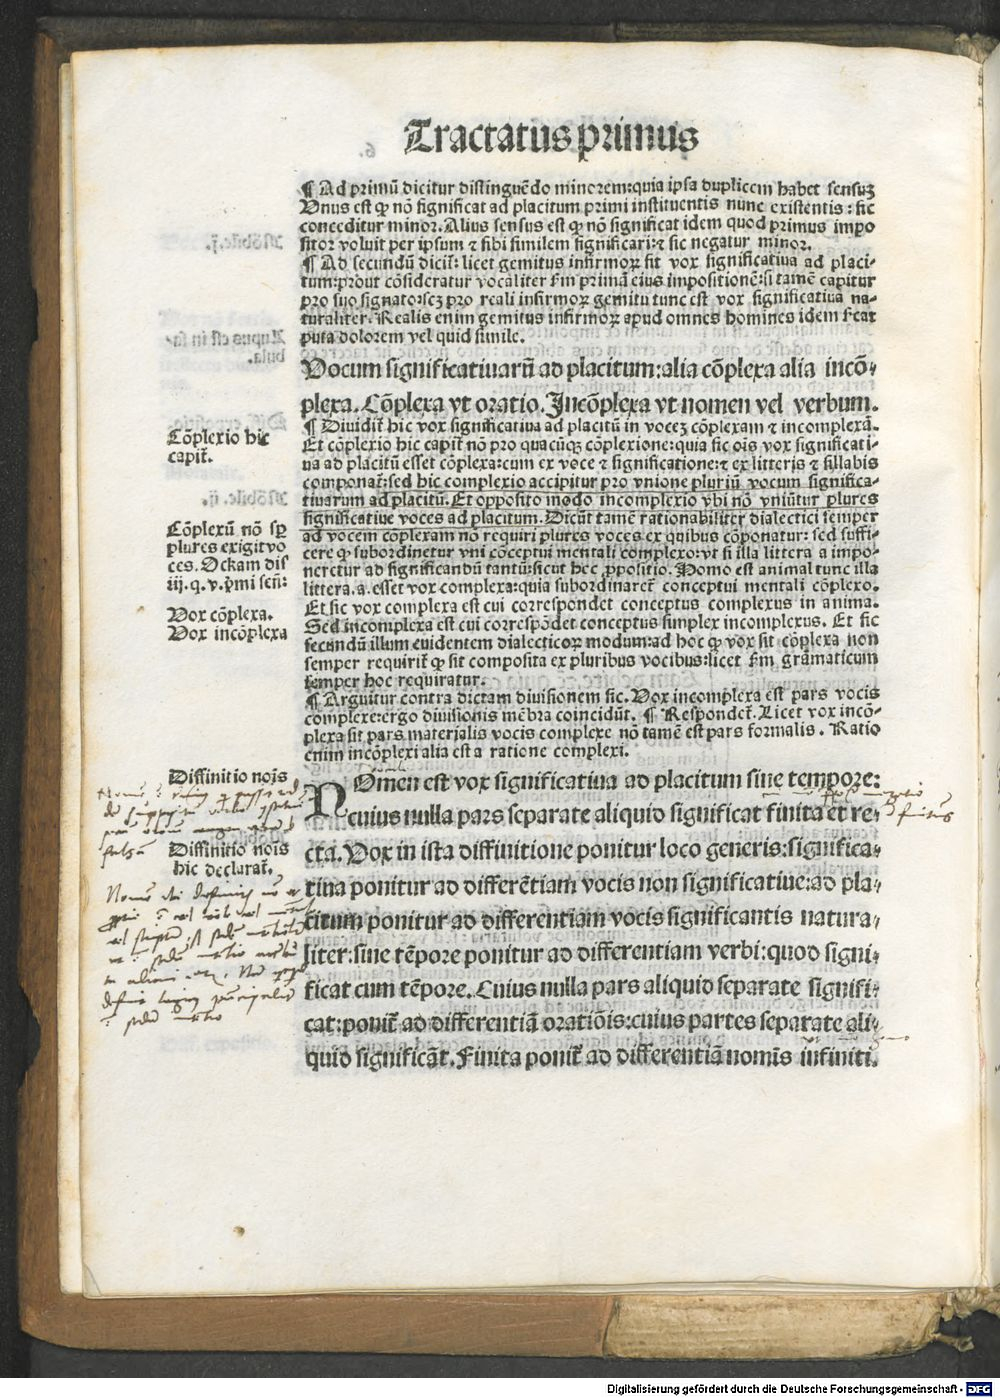 Tractatus primus
¶ Ad primū dicitur distinguēdo minorem:quia ipsa duplicem habet sensuȝ
Unus est ꝙ nō significat ad placitum primi instituentis nunc existentis : sic
conceditur minor. Alius sensus est ꝙ nō significat idem quod primus impo
sitor voluit per ipsum ⁊ sibi similem significari:⁊ sic negatur minor.
¶ Ad secundū dicit̄: licet gemitus infirmoꝝ sit vox significatiua ad placi-
tum:prout cōsideratur vocaliter ẜm primā eius impositionē:si tamē capitur
pro suo signato:scȝ pro reali infirmoꝝ gemitu tunc est vox significatiua na-
turaliter. Realis enim gemitus infirmoꝝ apud omnes homines idem ſcat
puta dolorem vel quid simile.
Vocum significatiuarū ad placitum:alia cōplexa alia incō-
plexa. Cōplexa vt oratio. Incōplexa vt nomen vel verbum.
Cōplexio hic
capit̄.
¶ Diuidit̄ hic vox significatiua ad placitū in voceȝ cōplexam ⁊ incomplexā.
Et cōplexio hic capit̄ nō pro quacūqȝ cōplexione:quia sic oīs vox significati-
ua ad placitū esset cōplexa:cum ex voce ⁊ significatione:⁊ ex litteris ⁊ sillabis
componat̄:sed hic complexio accipitur pro vnione pluriū vocum significa-
tiuarum ad placitū. Et opposito modo incomplexio vbi nō vniūtur plures
significatiue voces ad placitum. Dicūt tamē rationabiliter dialectici semper
Cōplexū nō sꝑ
plures exigit vo
ces. Ockam dis
iij. q. v. p̄mi sen̄:
ad vocem cōplexam nō requiri plures voces ex quibus cōponatur: sed suffi-
cere ꝙ subordinetur vni cōceptui mentali complexo:vt si illa littera a impo-
neretur ad significandū tantū:sicut hec ꝓpositio. Homo est animal tunc illa
littera.a. esset vox complexa:quia subordinaret̄ conceptui mentali cōplexo.
Vox cōplexa.
Vox incōplexa
Et sic vox complexa est cui correspondet conceptus complexus in anima.
Sed incomplexa est cui correspōdet conceptus simplex incomplexus. Et sic
secundū illum euidentem dialecticoꝝ modum:ad hoc ꝙ vox sit cōplexa non
semper requirit̄ ꝙ sit composita ex pluribus vocibus:licet ẜm grāmaticum
semper hoc requiratur.
¶ Arguitur contra dictam diuisionem sic. Vox incomplexa est pars vocis
complexe:ergo diuisionis mēbra coincidūt. ¶ Respondet̄. Licet vox incō-
plexa sit pars materialis vocis complexe nō tamē est pars formalis . Ratio
enim incōplexi alia est a ratione complexi.
Diffinitio noīs
NOmen est vox significatiua ad placitum sine tempore:
cuius nulla pars separate aliquid significat finita et re-
Diffinitio nois
hic declarat̄.
cta. Vox in ista diffinitione ponitur loco generis:significa-
tiua ponitur ad differētiam vocis non significatiue:ad pla-
citum ponitur ad differentiam vocis significantis natura-
liter:sine tēpore ponitur ad differentiam verbi:quod signi-
ficat cum tēpore. Cuius nulla pars aliquid separate signifi-
cat:ponit̄ ad differentiā oratiōis:cuius partes separate ali-
quid significāt. Finita ponit̄ ad differentiā nominis infiniti.
Digitalisierung gefördert durch die Deutsche Forschungsgemeinschaft - DFG